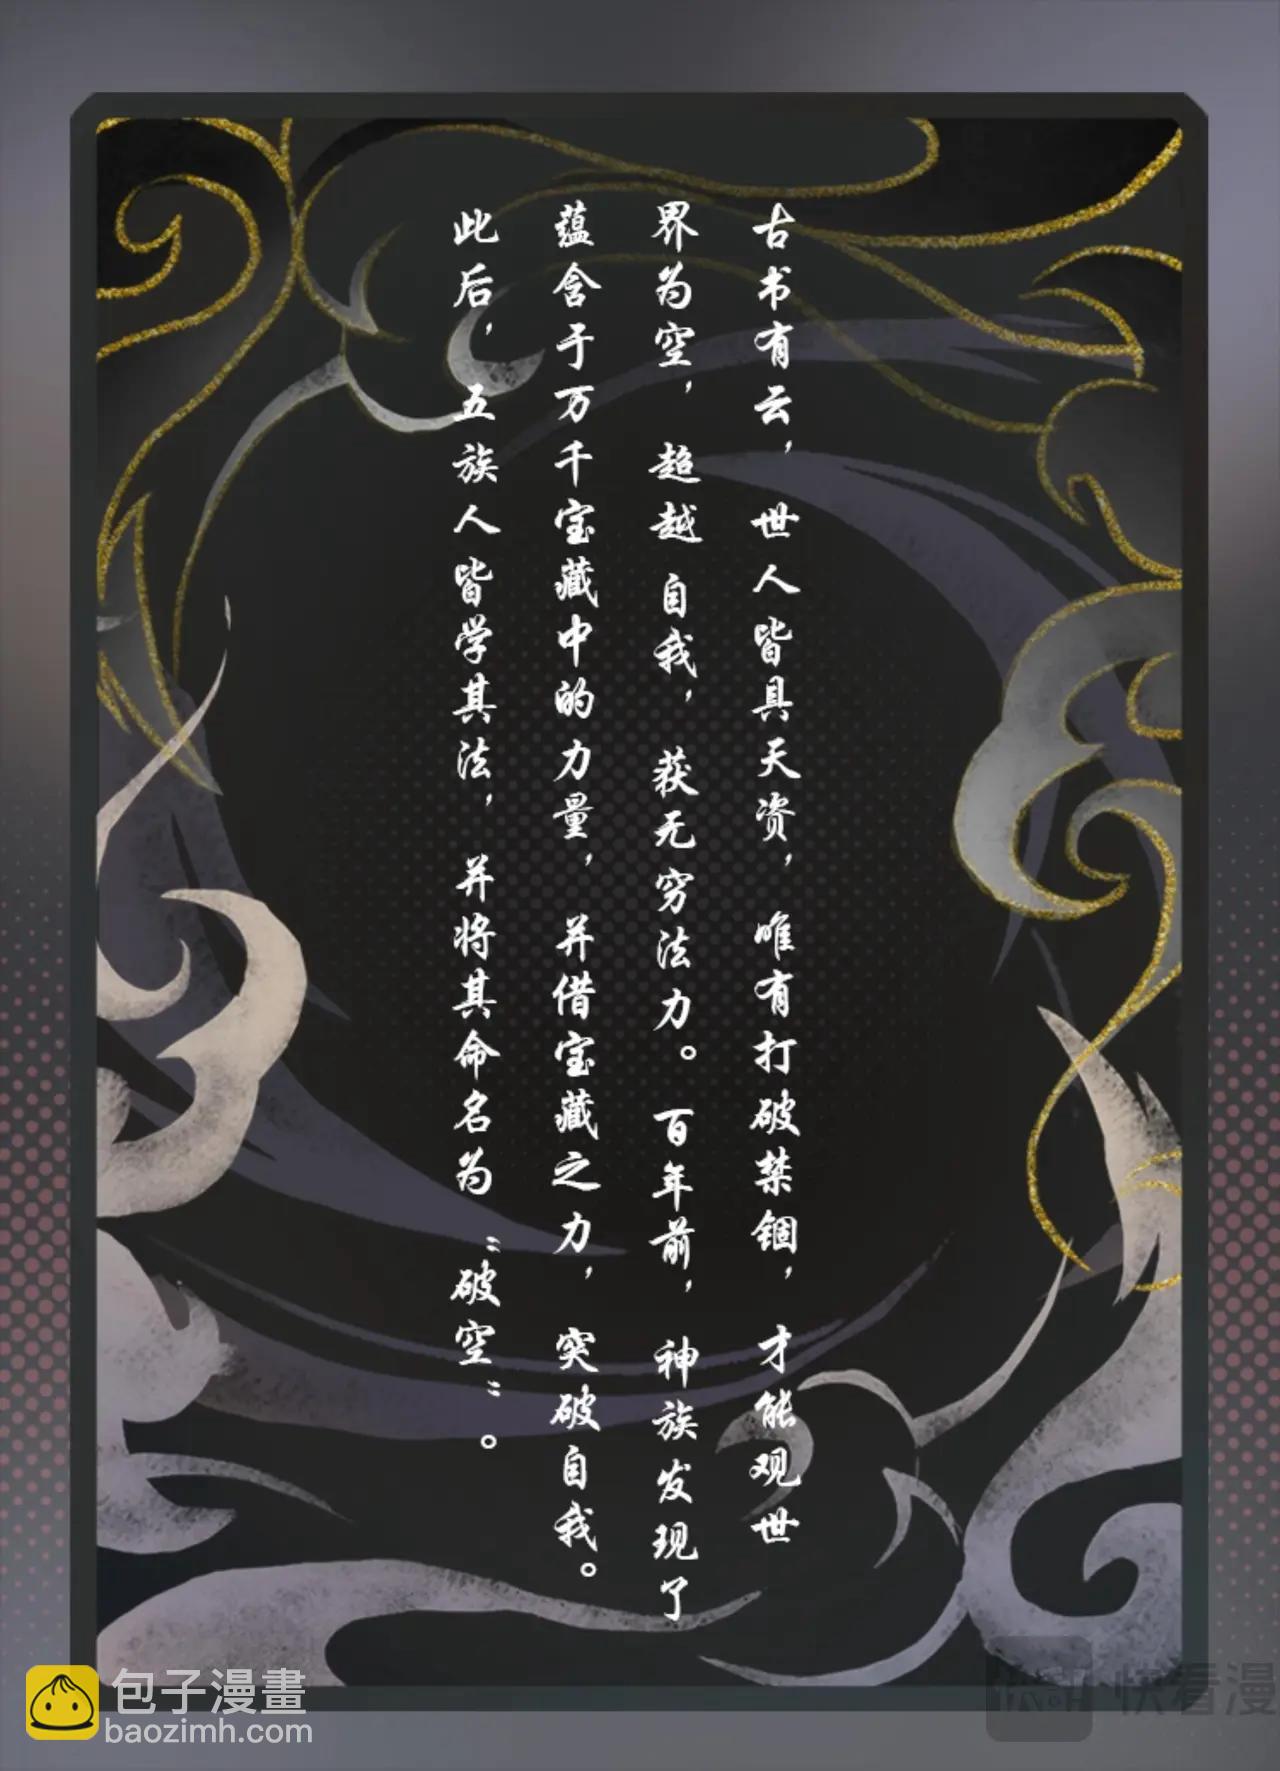 古书有云，世人皆具天资，唯有打破禁锢，才能观世
界为空，超越自我，获无穷法力。百年前，神族发现了
蕴含于万千宝藏中的力量，并借宝藏之力，突破自我。
此后，五族人皆学其法，并将其命名为“破空”。
包子漫畫
baozimh.com
快看漫